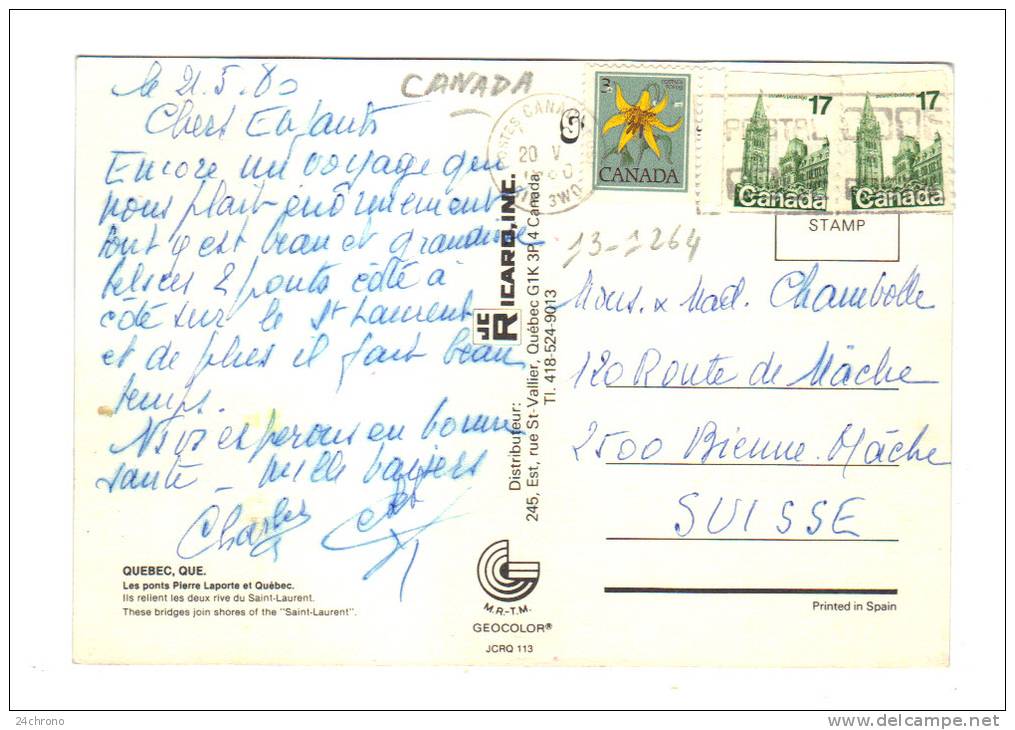 le 21.5.80
Chers Enfants
Encore un voyage qui
nous plait énormément
tout y est beau et grandiose
tels ces 2 ponts côté à
côté sur le St Laurent
et de plus il fait beau
temps.
espérons en bonne
santé – mille baisers
Charles
QUEBEC, QUE.
Les ponts Pierre Laporte et Québec.
Ils relient les deux rive du Saint-Laurent.
These bridges join shores of the "Saint-Laurent".
CANADA
POSTES CANADA
20 V
3W0
3
CANADA
17
Canada
17
Canada
STAMP
13-1264
JC RICARD, INC.
Distributeur:
245, Est, rue St-Vallier, Québec G1K 3P4 Canada
Tl. 418-524-9013
M.R.-T.M.
GEOCOLOR®
JCRQ 113
Mons. & Mad. Chambolle
120 Route de Mâche
2500 Bienne-Mâche
SUISSE
Printed in Spain
24chrono
www.delcampe.net